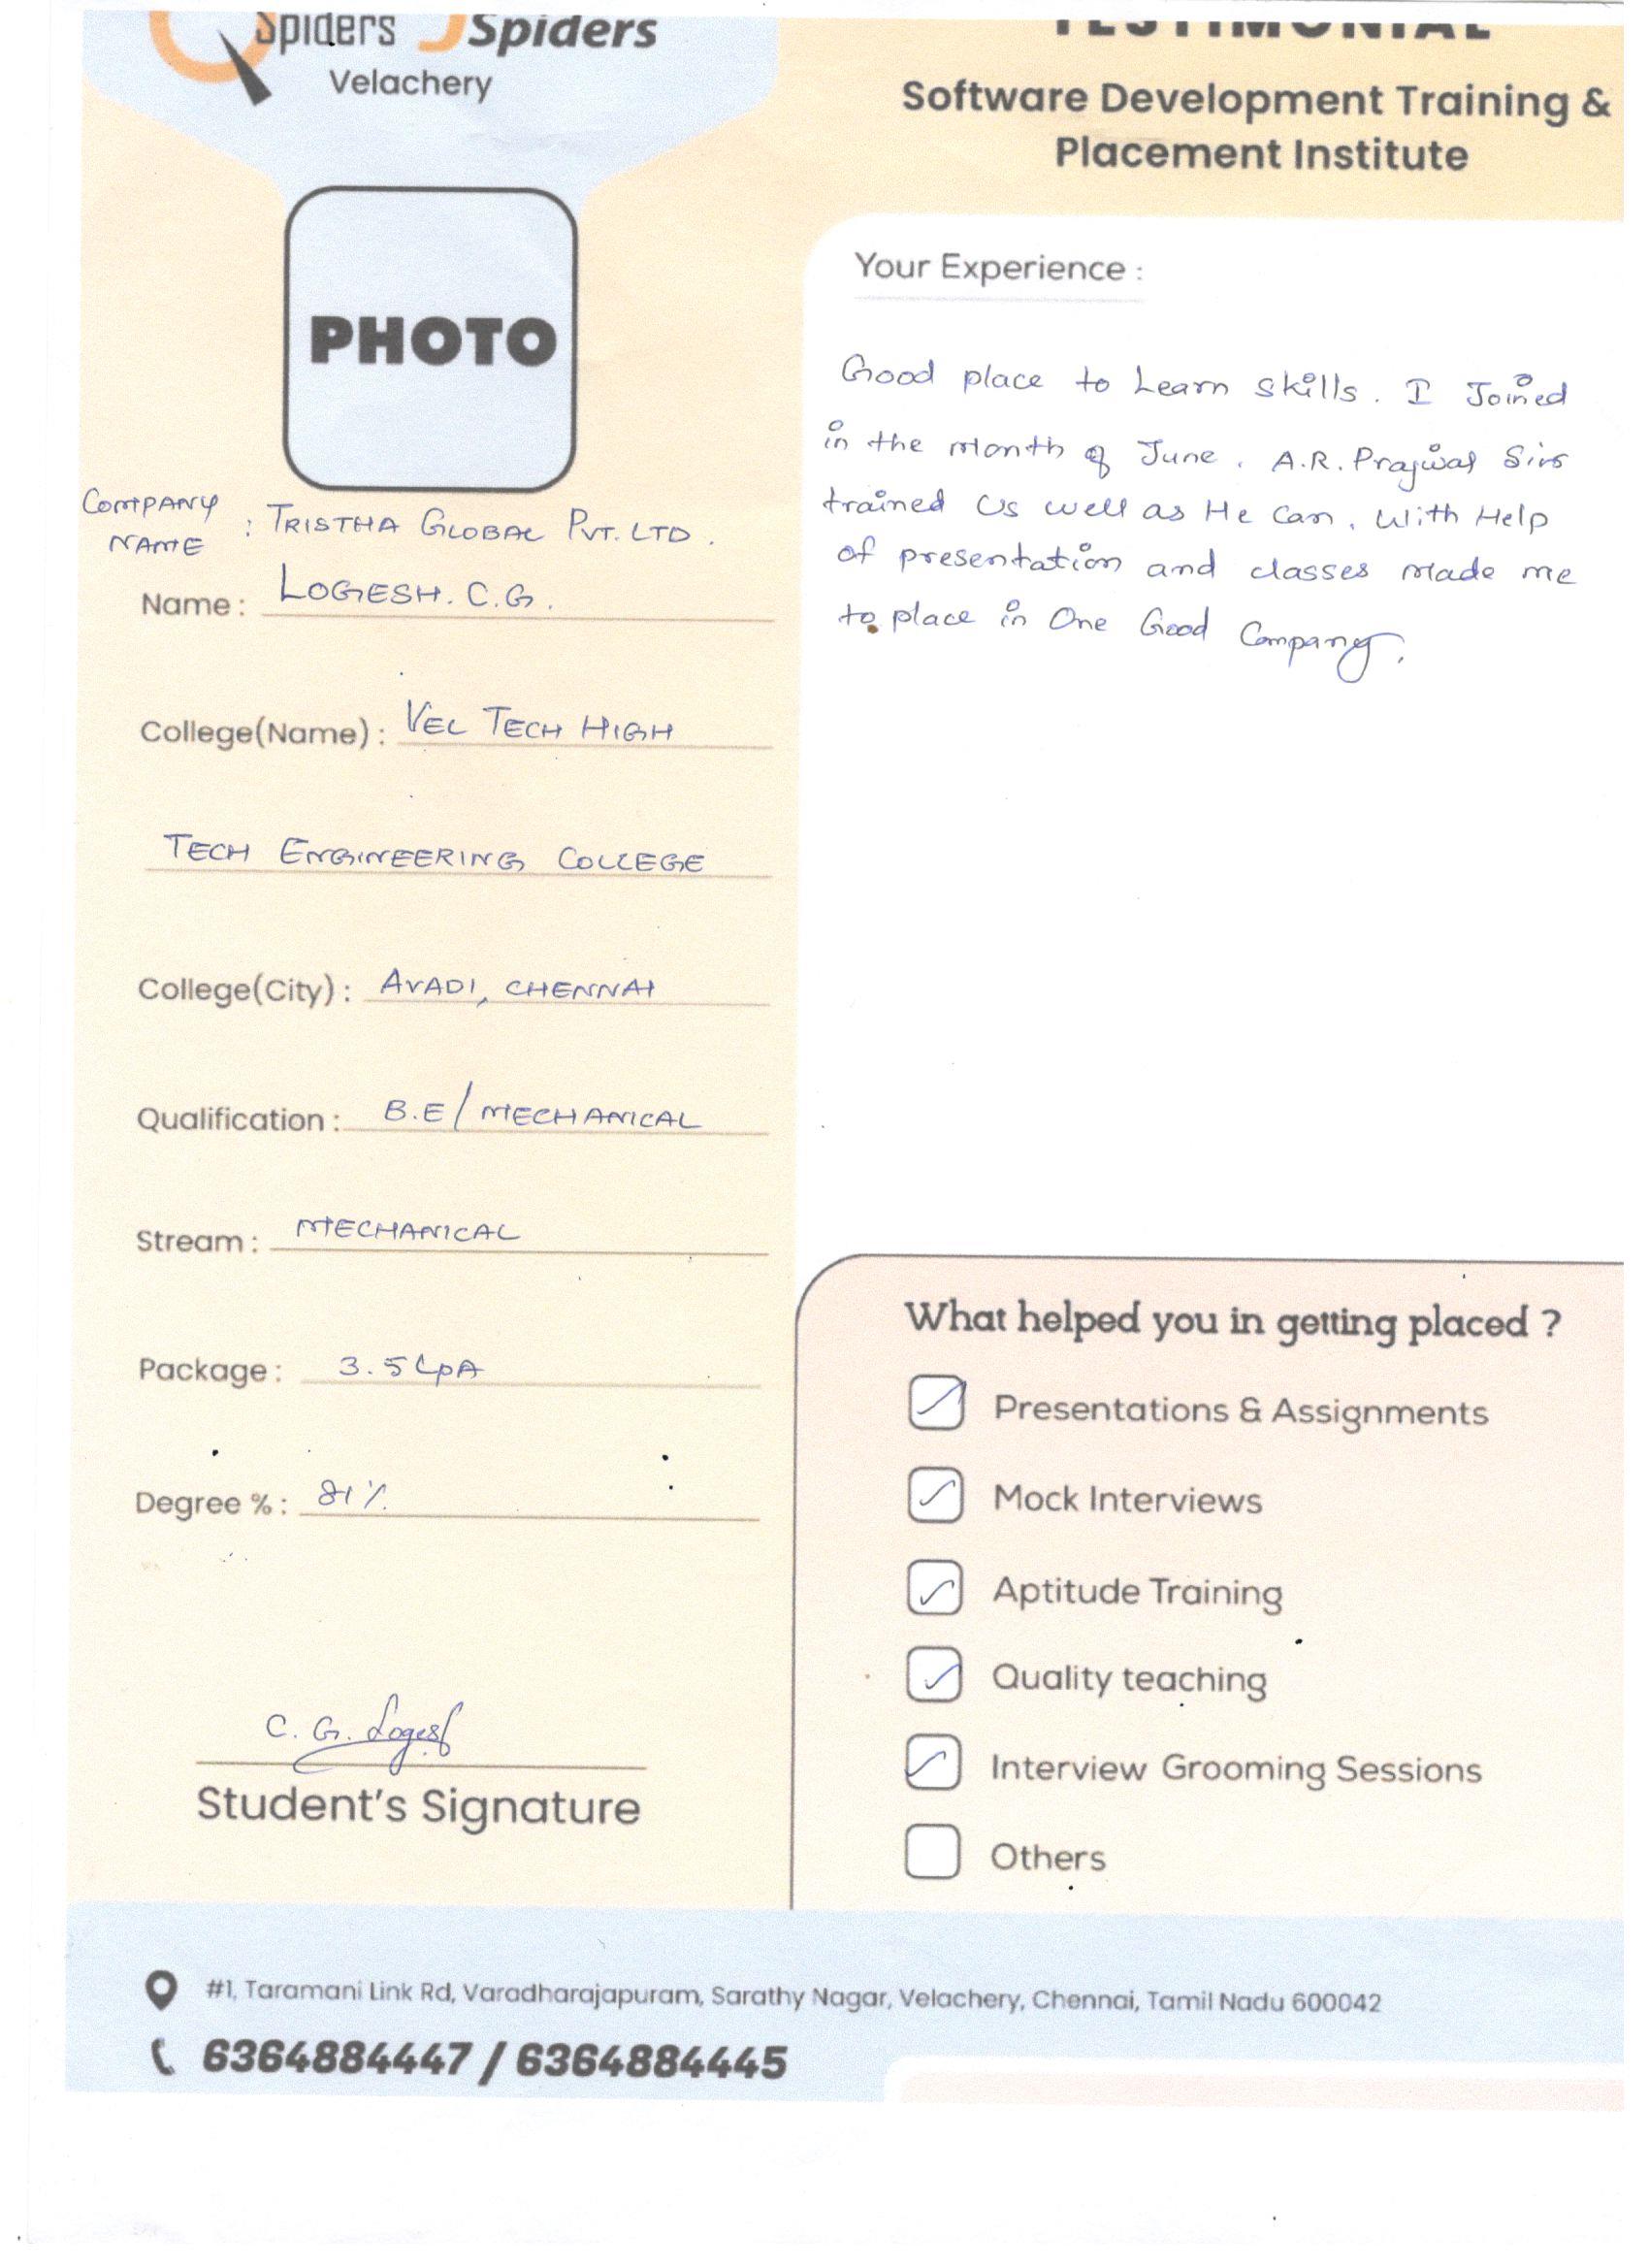 Spiders JSpiders
Velachery
TESTIMONIAL
Software Development Training &
Placement Institute
PHOTO
COMPANY NAME : TRISTHA GLOBAL PVT. LTD.
Name : LOGESH. C.G.
College(Name) : VEL TECH HIGH
TECH ENGINEERING COLLEGE
College(City) : AVADI, CHENNAI
Qualification : B.E / MECHANICAL
Stream : MECHANICAL
Package : 3.5 LPA
Degree % : 81%
C. G. Logesh
Student's Signature
Your Experience :
Good place to Learn skills. I Joined
in the Month of June. A.R. Prajwal Sir
trained Us well as He Can. With Help
of presentation and classes Made me
to place in One Good Company.
What helped you in getting placed ?
Presentations & Assignments
Mock Interviews
Aptitude Training
Quality teaching
Interview Grooming Sessions
Others
#1, Taramani Link Rd, Varadharajapuram, Sarathy Nagar, Velachery, Chennai, Tamil Nadu 600042
6364884447 / 6364884445